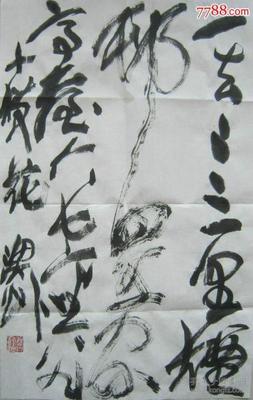 一去二三里烟
村四五家
亭台六七座八九
十枝花
7788.com